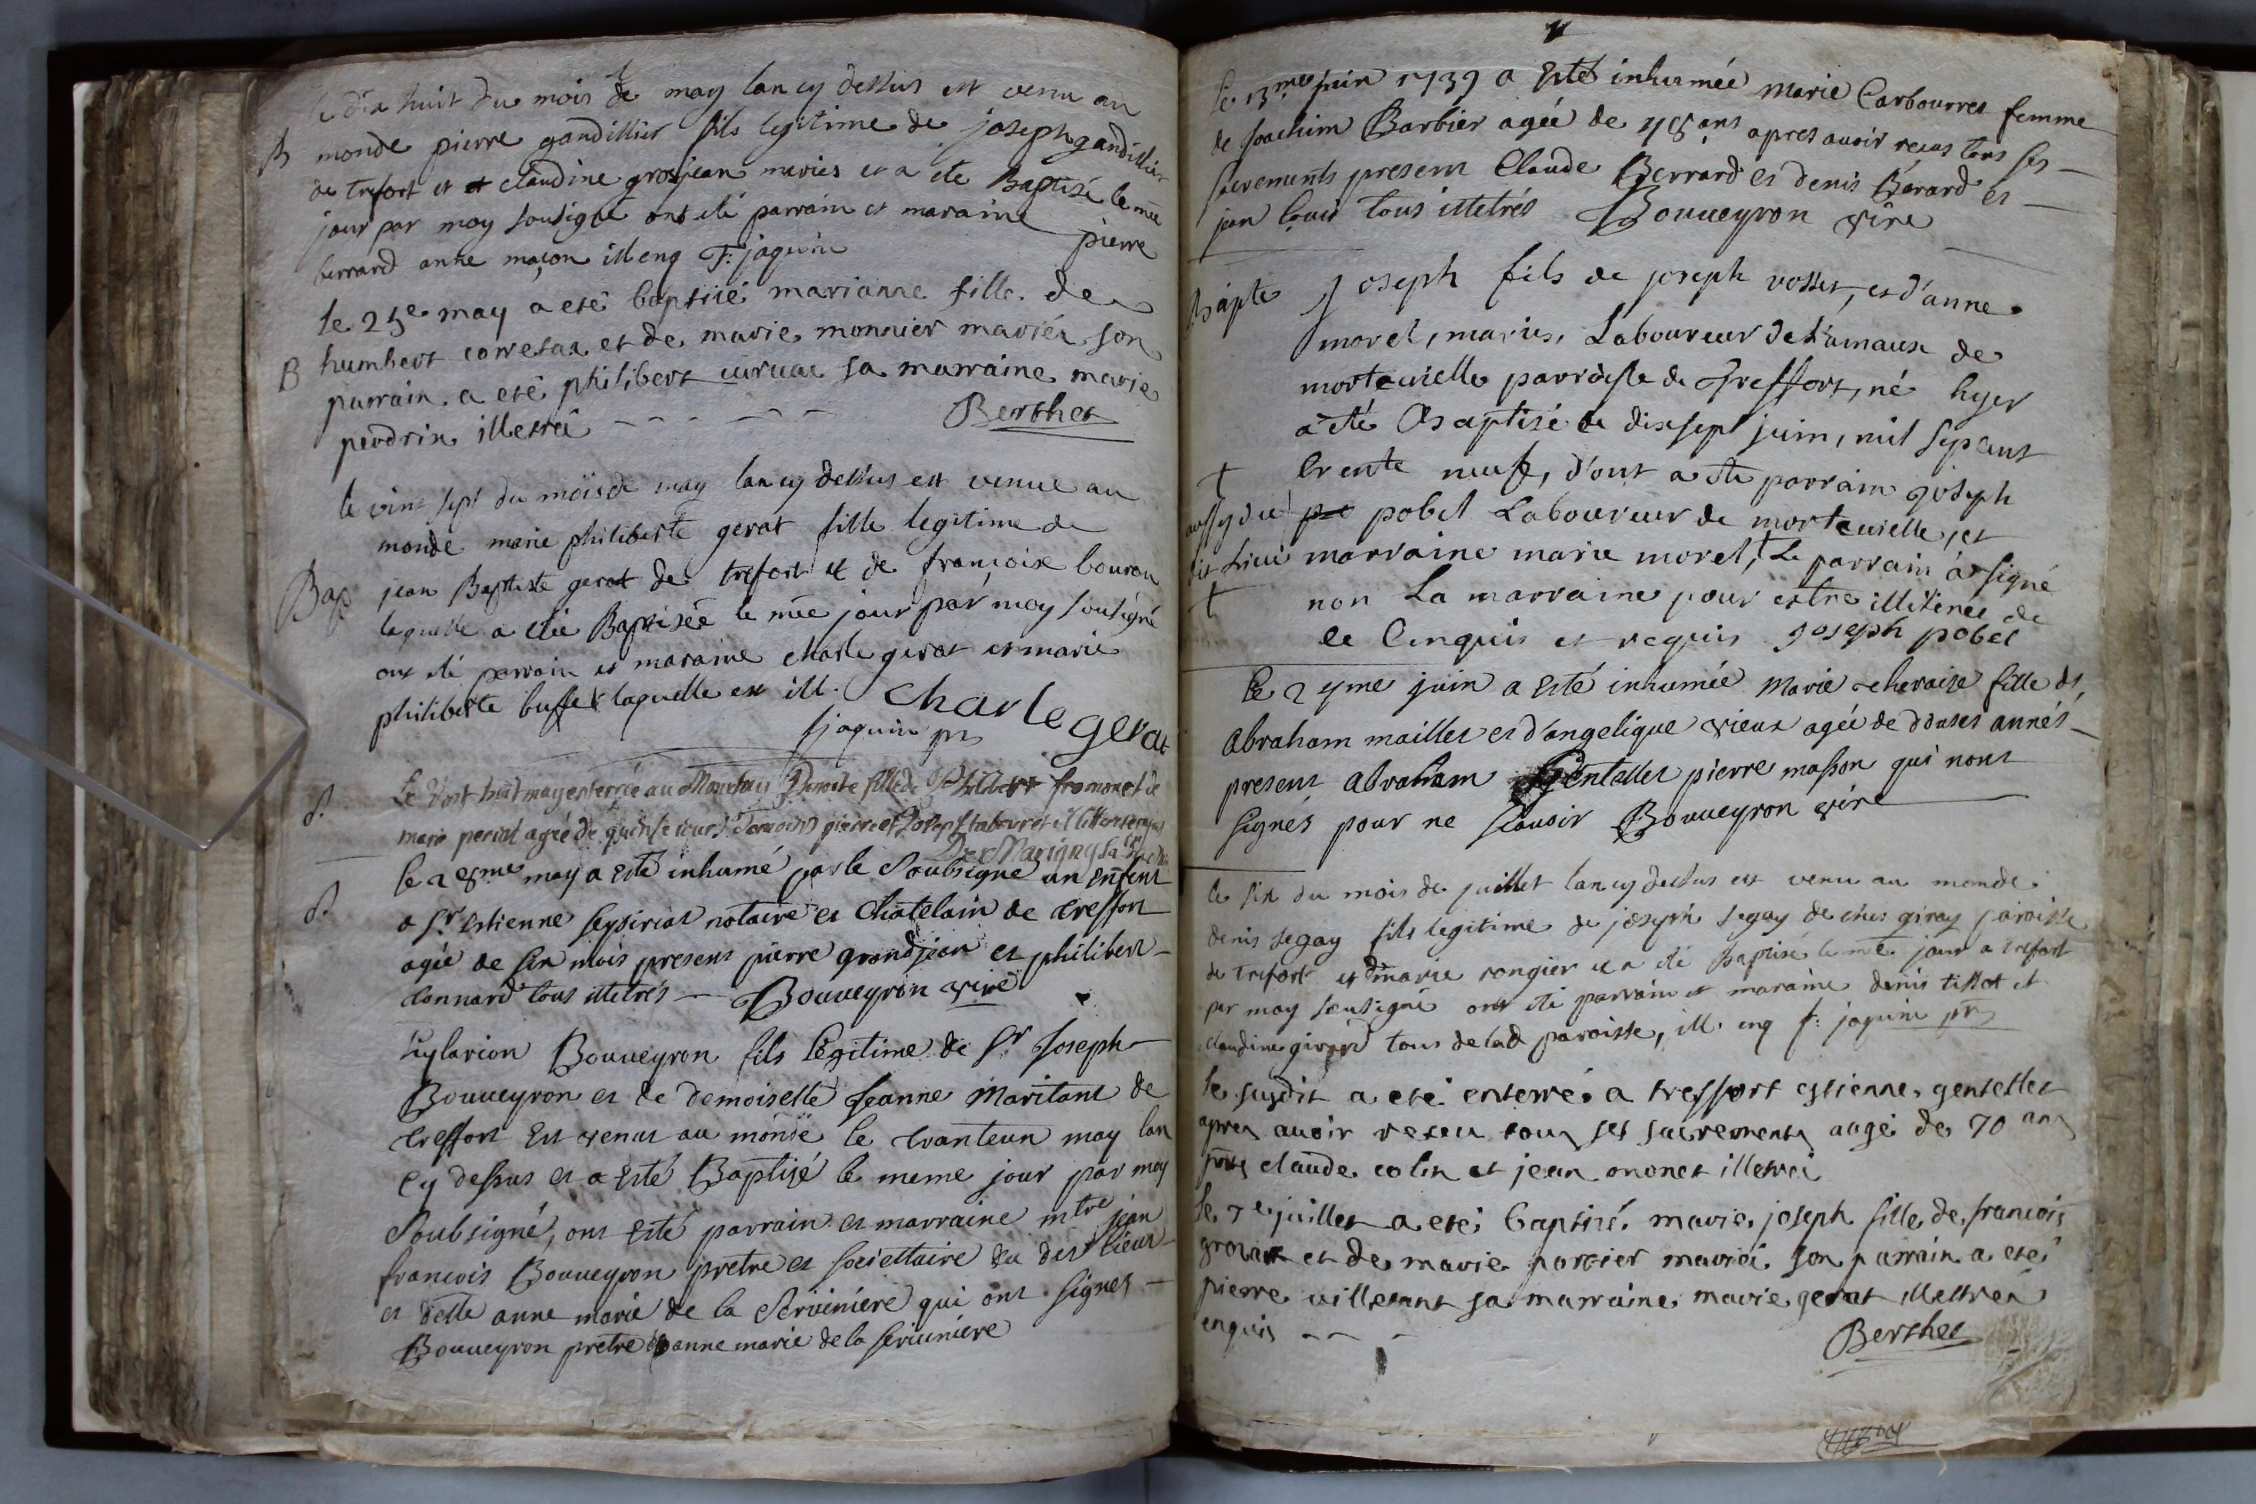 le dix huit du mois de may lan cy dessus est venu au
B monde pierre gandillier fils legitime de joseph gandillier
de trefort et et claudine grosjean mariés et a été Baptisé le mẽ
jour par moy sousigné ont eté parrain et maraine pierre
berrard anne maçon ill enq F: jaquin
le 25e may a eté baptiseé marianne fille de
B humbert et de marie monnier mariés son
parrain a eté philibert curvat sa marraine marie
perdrix illetré
Berthet
le vint sept du mois de may lan cy dessus est venue au
monde marie philiberte gerat fille legitime de
Bap jean Baptiste gerat de trefort et de françoise bouron
laquelle a étée Baptiséé le mẽ jour par moy sousigné
ont eté parrain et maraine charle gerat et marie
philiberte buffet laquelle est ill. charle gerat
f jaquin ptr
Le vint huit may enterrée au Denoite fille de Philibert fromonet de
marie agée de quinse jours Temoins pierre et Joseph tabouret
De Marigny
le 28me may a esté inhumé par le Soubsigné un Enfent
a Sr Estienne notaire et Châtelain de treffort
agée de six mois present pierre grandjean et philibert
connard tous illetrés Bouueyron vire
hylarion Bouueyron fils Légitime de Sr Joseph
Bouueyron et de demoiselle Jeanne Maritant de
treffort Est venut au monde le tranteun may lan
cy dessus et a Esté Baptisé le meme jour par moy
Soubsigné, ont Esté parrain et marraine mtre jean
francois Bouueyron pretre et societtaire du dit lieux
et delle anne marie de la Servinière qui ont signes
Bouueyron pretre anne marie de la seruiniere
le 13me juin 1739 a Esté inhumée marie Carbourres femme
de Joachim Barbier agée de ans apres avoir recus tous ses
sacrements present Claude Berrard et denis Bérard et
jean tous illetrés Bouueyron vire
Bapte Joseph fils de joseph vosset, et d'anne
morel, mariés, Laboureur de hamaux de
mortevielle parroisse de Treffort, né hyer
a été Baptisé le dixsept juin, mil sepcent
† trente neuf, d'ont a été parrain joseph
aussy du pobel Laboureur de mortevielle, et
dit Lieu marraine marie morel, † Le parrain a signé
† non La marraine pour estre illitérée de
ce enquis et requis Joseph pobel
le 29me juin a Esté inhumée Marie fille de
Abraham maillet et d'angelique vieux agée de douses années
present Abraham Gentellet pierre masson qui nont
signés pour ne scauoir Bouueyron vire
le six du mois de juillet lan cy dessus est venu au monde
denis segay fils legitime de joseph segay de ches giray paroisse
de trefort et de marie rongier et a eté Baptisé le mẽ jour a trefort
par moy sousigné ont eté parrain et maraine denis tissot et
claudine girard tous de lad paroisse, ill. enq f: jaquin ptr
le susdit a eté enterré a treffort estienne gentellet
apres auoir receu tous ses sacrements augé de 70 ans
pnts claude colin et jean ononet illetréi
le 7e juillet a eté baptisé marie joseph fille de françois
et de marie portier mariéi son parrain a eté
pierre villerant sa marraine marie gerat illettrés
enquis
Berthet